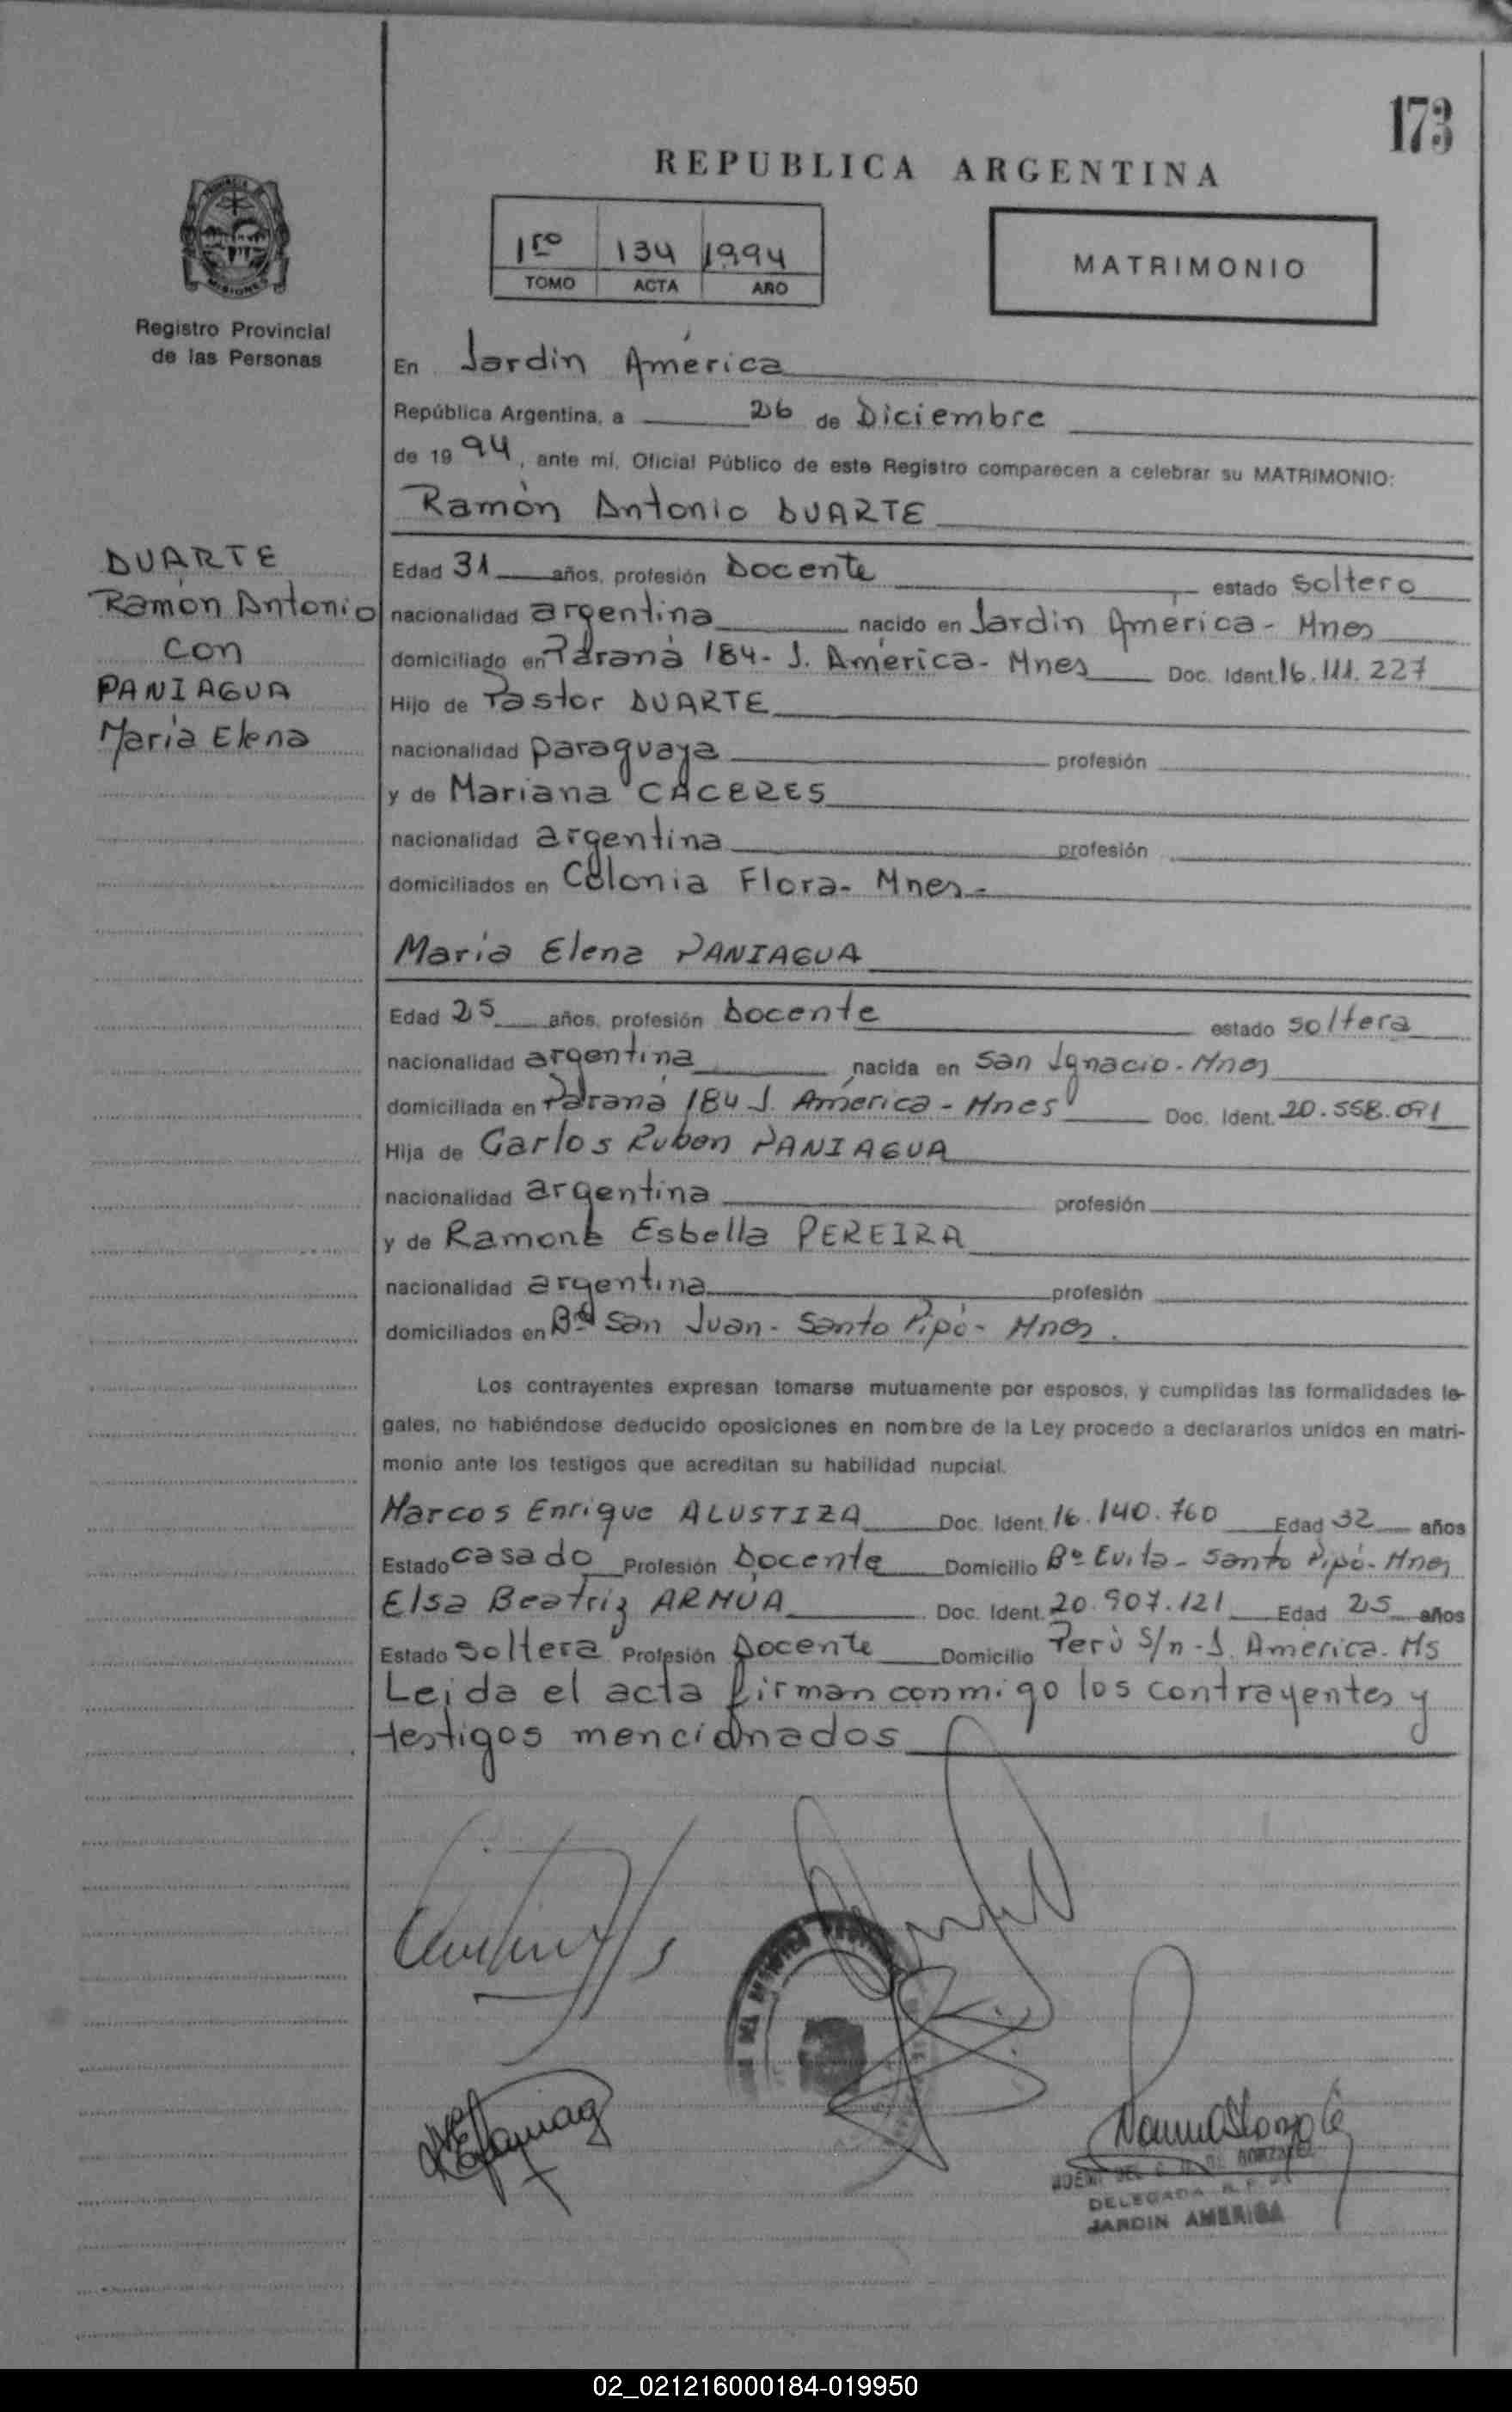 173
REPUBLICA ARGENTINA
1ro 134 1994
TOMO ACTA AÑO
MATRIMONIO
MISIONES
Registro Provincial
de las Personas
En Jardín América
República Argentina, a 26 de Diciembre
de 1994, ante mí, Oficial Público de este Registro comparecen a celebrar su MATRIMONIO:
Ramón Antonio DUARTE
DUARTE
Ramón Antonio
con
PANIAGUA
María Elena
Edad 31 años, profesión Docente estado soltero
nacionalidad argentina nacido en Jardín América - Mnes
domiciliado en Paraná 184 - J. América - Mnes Doc. Ident. 16.111.227
Hijo de Pastor DUARTE
nacionalidad paraguaya profesión
y de Mariana CACERES
nacionalidad argentina profesión
domiciliados en Colonia Flora - Mnes -
María Elena PANIAGUA
Edad 25 años, profesión Docente estado soltera
nacionalidad argentina nacida en San Ignacio - Mnes
domiciliada en Paraná 184 J. América - Mnes Doc. Ident. 20.558.091
Hija de Carlos Ruben PANIAGUA
nacionalidad argentina profesión
y de Ramona Esbella PEREIRA
nacionalidad argentina profesión
domiciliados en Bº San Juan - Santo Pipó - Mnes.
Los contrayentes expresan tomarse mutuamente por esposos, y cumplidas las formalidades le-
gales, no habiéndose deducido oposiciones en nombre de la Ley procedo a declararlos unidos en matri-
monio ante los testigos que acreditan su habilidad nupcial.
Marcos Enrique ALUSTIZA Doc. Ident. 16.140.760 Edad 32 años
Estado casado Profesión Docente Domicilio Bº Evita - Santo Pipó - Mnes
Elsa Beatriz ARMÚA Doc. Ident. 20.907.121 Edad 25 años
Estado soltera Profesión Docente Domicilio Perú S/n - J. América - Ms
Leida el acta firman conmigo los contrayentes y
testigos mencionados
DELEGADA
JARDIN AMERICA
02_021216000184-019950